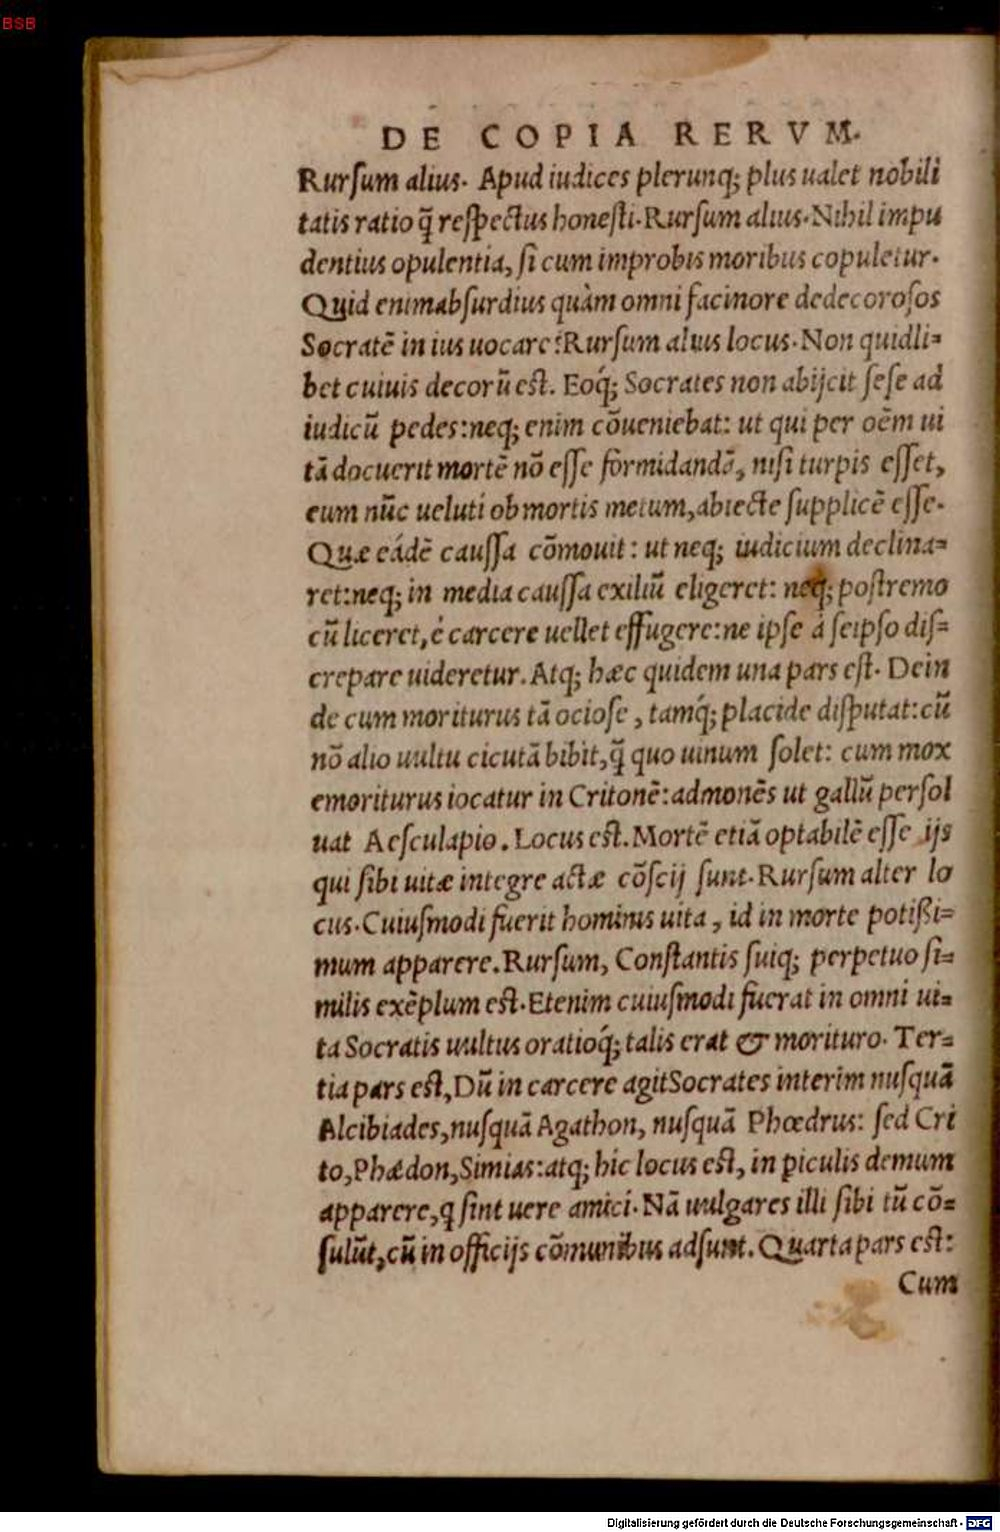 BSB
DE COPIA RERVM.
Rurſum alius. Apud iudices plerunq; plus ualet nobili
tatis ratio q̃ reſpectus honeſti. Rurſum alius. Nihil impu
dentius opulentia, ſi cum improbis moribus copuletur.
Quid enim abſurdius quàm omni facinore dedecoroſos
Socratē in ius uocare? Rurſum alius locus. Non quidli=
bet cuiuis decorũ eſt. Eoq́; Socrates non abijcit ſeſe ad
iudicũ pedes: neq; enim cõueniebat: ut qui per oēm ui
tã docuerit mortē nõ eſſe formidandã, niſi turpis eſſet,
eum nũc ueluti ob mortis metum, abiecte ſupplicē eſſe.
Quæ eádē cauſſa cõmouit: ut neq; iudicium declina=
ret: neq; in media cauſſa exiliũ eligeret: neq; poſtremo
cũ liceret, è carcere uellet effugere: ne ipſe à ſeipſo diſ=
crepare uideretur. Atq; hæc quidem una pars eſt. Dein
de cum moriturus tã ocioſe, tamq́; placide diſputat: cũ
nõ alio uultu cicutã bibit, q̃ quo uinum ſolet: cum mox
emoriturus iocatur in Critonē: admonēs ut gallũ perſol
uat Aeſculapio. Locus eſt. Mortē etiã optabilē eſſe ijs
qui ſibi uitæ integre actæ cõſcij ſunt. Rurſum alter lo
cus. Cuiuſmodi fuerit hominis uita, id in morte potißi=
mum apparere. Rurſum, Conſtantis ſuiq; perpetuo ſi=
milis exēplum eſt. Etenim cuiuſmodi fuerat in omni ui=
ta Socratis uultus oratioq́; talis erat & morituro. Ter=
tia pars eſt, Dũ in carcere agit Socrates interim nuſquã
Alcibiades, nuſquã Agathon, nuſquã Phœdrus: ſed Cri
to, Phædon, Simias: atq; hic locus eſt, in piculis demum
apparere, q ſint uere amici. Nã uulgares illi ſibi tũ cõ=
ſulũt, cũ in officijs cõmunibus adſunt. Quarta pars eſt:
Cum
Digitalisierung gefördert durch die Deutsche Forschungsgemeinschaft - DFG